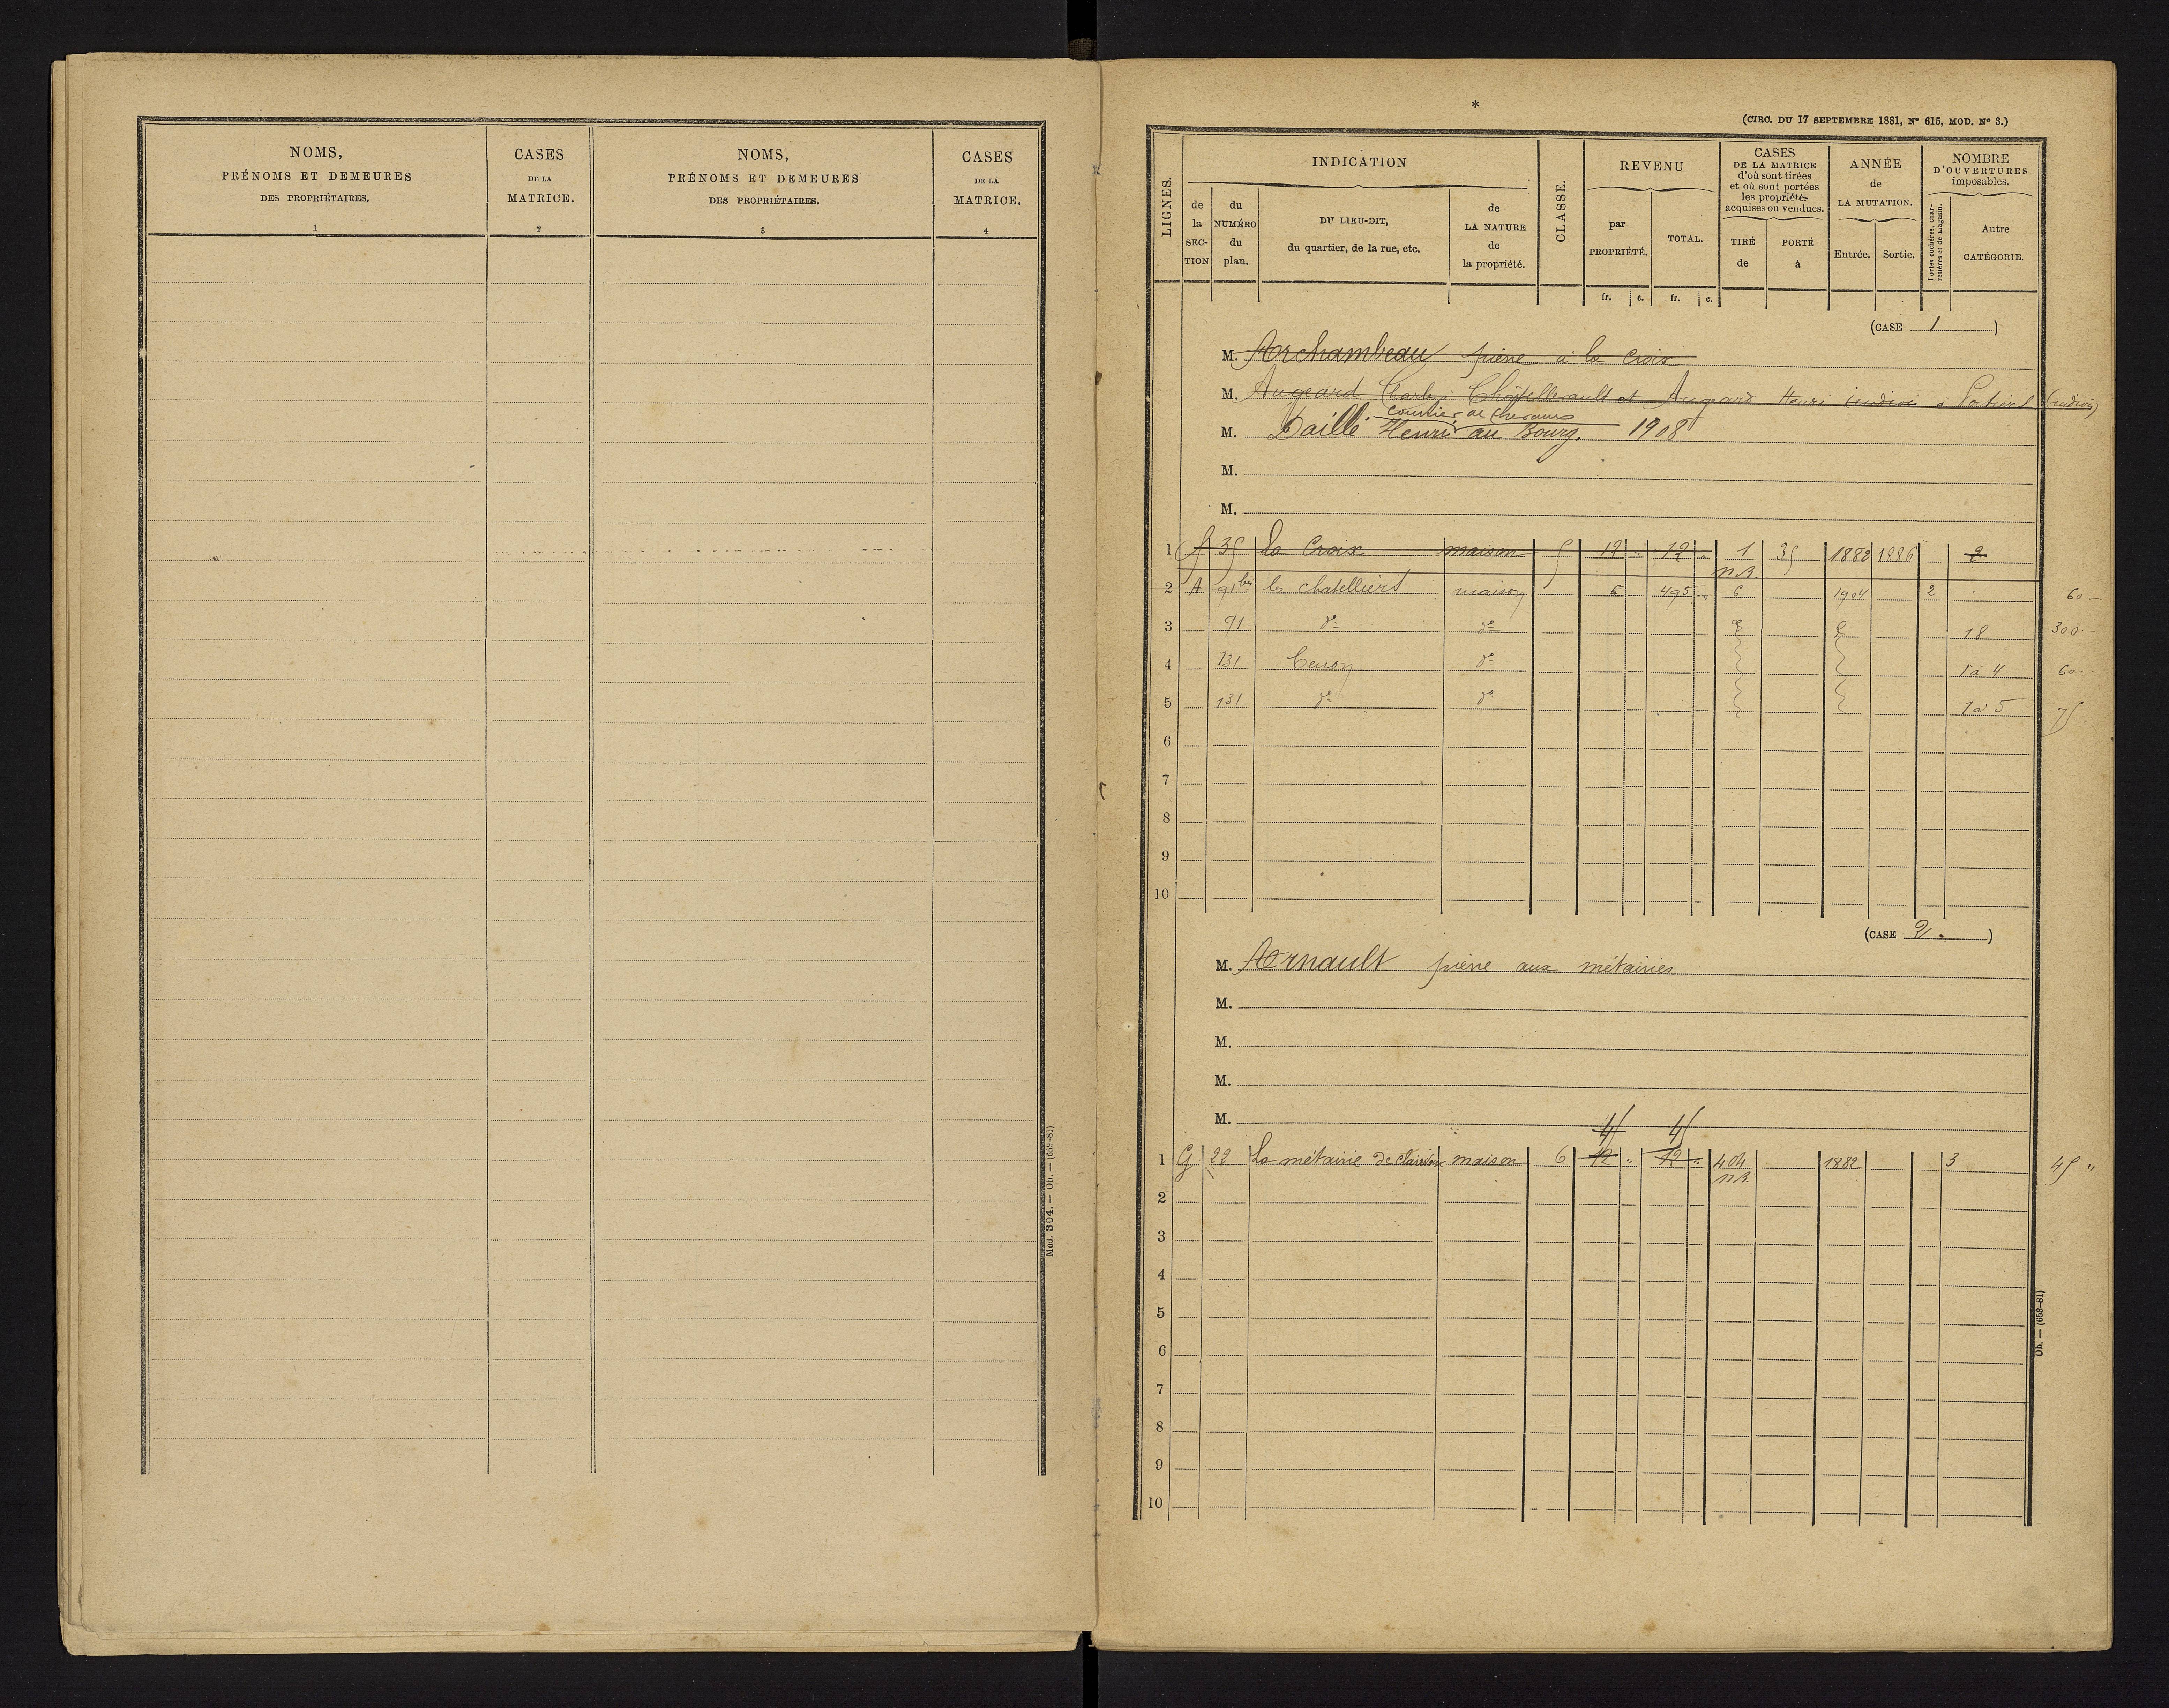 NOMS,
PRÉNOMS ET DEMEURES
DES PROPRIÉTAIRES.
1
CASES
DE LA
MATRICE.
2
NOMS,
PRÉNOMS ET DEMEURES
DES PROPRIÉTAIRES.
3
CASES
DE LA
MATRICE.
4
Mod. 304. — Ob. — (659-81)
*
(CIRC. DU 17 SEPTEMBRE 1881, Nº 615, MOD. Nº 3.)
LIGNES.
INDICATION
de la SECTION
du NUMÉRO du plan.
DU LIEU-DIT,
du quartier, de la rue, etc.
de LA NATURE de la propriété.
CLASSE.
REVENU
par PROPRIÉTÉ.
TOTAL.
fr. c. fr. c.
CASES
DE LA MATRICE
d'où sont tirées
et où sont portées
les propriétés
acquises ou vendues.
TIRÉ de
PORTÉ à
ANNÉE
de
LA MUTATION.
Entrée. Sortie.
NOMBRE
D'OUVERTURES
imposables.
Portes cochères, charretières et de magasin.
Autre
CATÉGORIE.
(CASE 1)
M. Archambeau pierre à la Croix
M. Augeard Charles Châtellerault et Augeard Henri à (indivis)
courtier de chevaux
M. Daillé Henri au Bourg. 1908
M.
M.
1 35 la Croix maison 5 12 " 12 " 1 35 1882 1886 2
n.B.
2 A 91 bis les chatelliers maison 6 495 6 1904 2 60
3 91 dº dº 18 300
4 131 Cenon dº 1 à 4 60
5 131 dº dº 1 à 5 75
6
7
8
9
10
(CASE 2.)
M. Arnault pierre aux métairies
M.
M.
M.
M.
45 45
1 G 22 La métairie de maison 6 12 " 12 " 404 1882 3 45 "
n.B.
2
3
4
5
6
7
8
9
10
Ob. — (653-81)